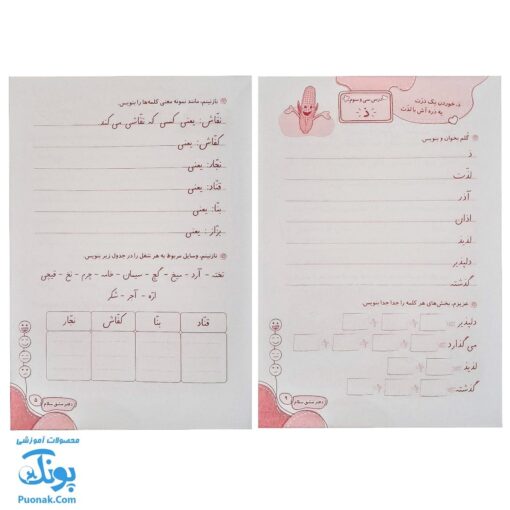 درس سی و سوم
ذ
ذ، خوردن یک ذرّت
یه ذرّه آش با لذّت
گُلم بخوان و بنویس.
ذ
لذّت
آذر
اذان
لذیذ
دلپذیر
گذشته
عزیزم، بخش‌های هر کلمه را جدا جدا بنویس.
دلپذیر
می گذارد
لذیذ
گذشته
۹
دفتر مشق سلام
نازنینم، مانند نمونه معنی کلمه‌ها را بنویس.
نقّاش: یعنی کسی که نقّاشی می کند.
کفّاش: یعنی
نجّار: یعنی
قنّاد: یعنی
بنّا: یعنی
بزّاز: یعنی
نازنینم، وسایل مربوط به هر شغل را در جدول زیر بنویس.
تخته - آرد - میخ - گچ - سیمان - خامه - چرم - نخ - قیچی
ارّه - آجر - شکر
قنّاد بنّا کفّاش نجّار
۵
دفتر مشق سلام
محصولات آموزشی
پونک
Puonak.Com